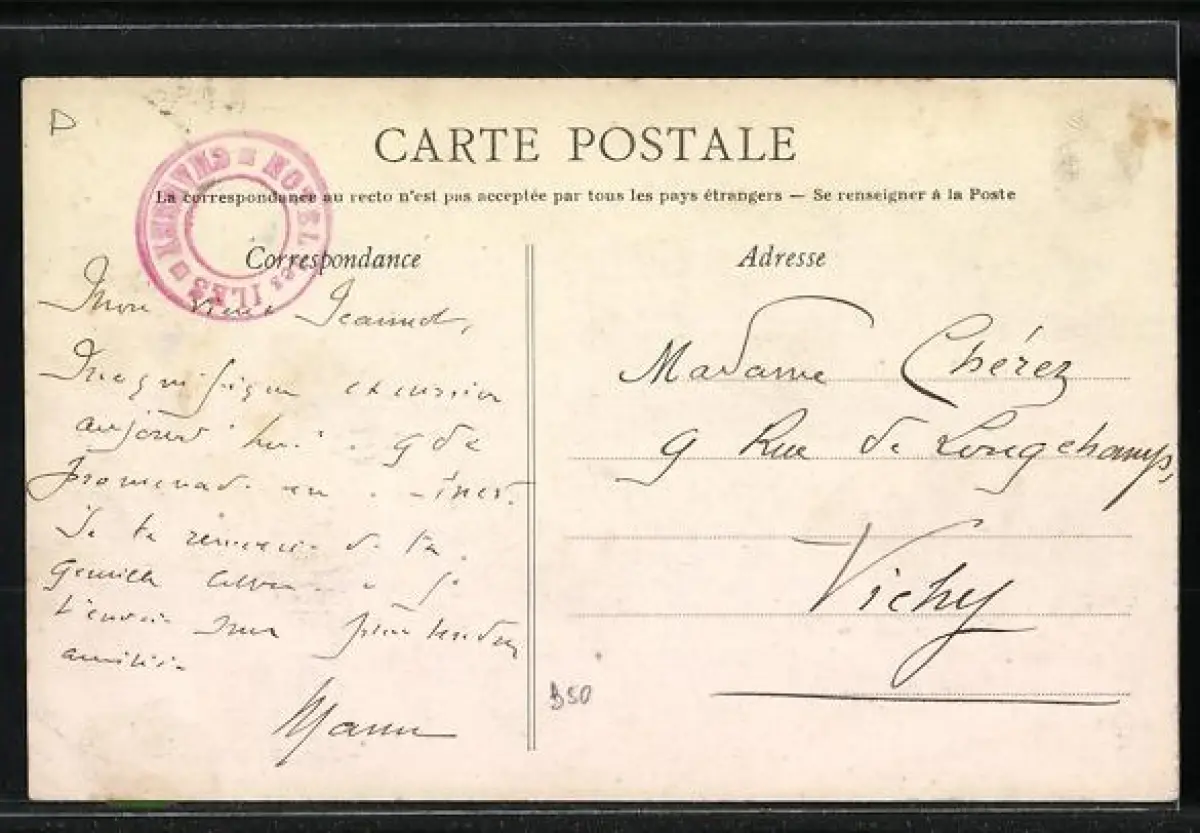 D
CARTE POSTALE
La correspondance au recto n'est pas acceptée par tous les pays étrangers — Se renseigner à la Poste
HOTEL des ILES CHAUSEY
Correspondance
Adresse
Mon vieux Jeannot,
Magnifique excursion
aujourd'hui. gde
promenade en
Je te remercie de ta
gentille lettre et je
t'envoie mes plus tendres
amitiés.
Madame Chérez
9 Rue de Longchamps,
Vichy
B50